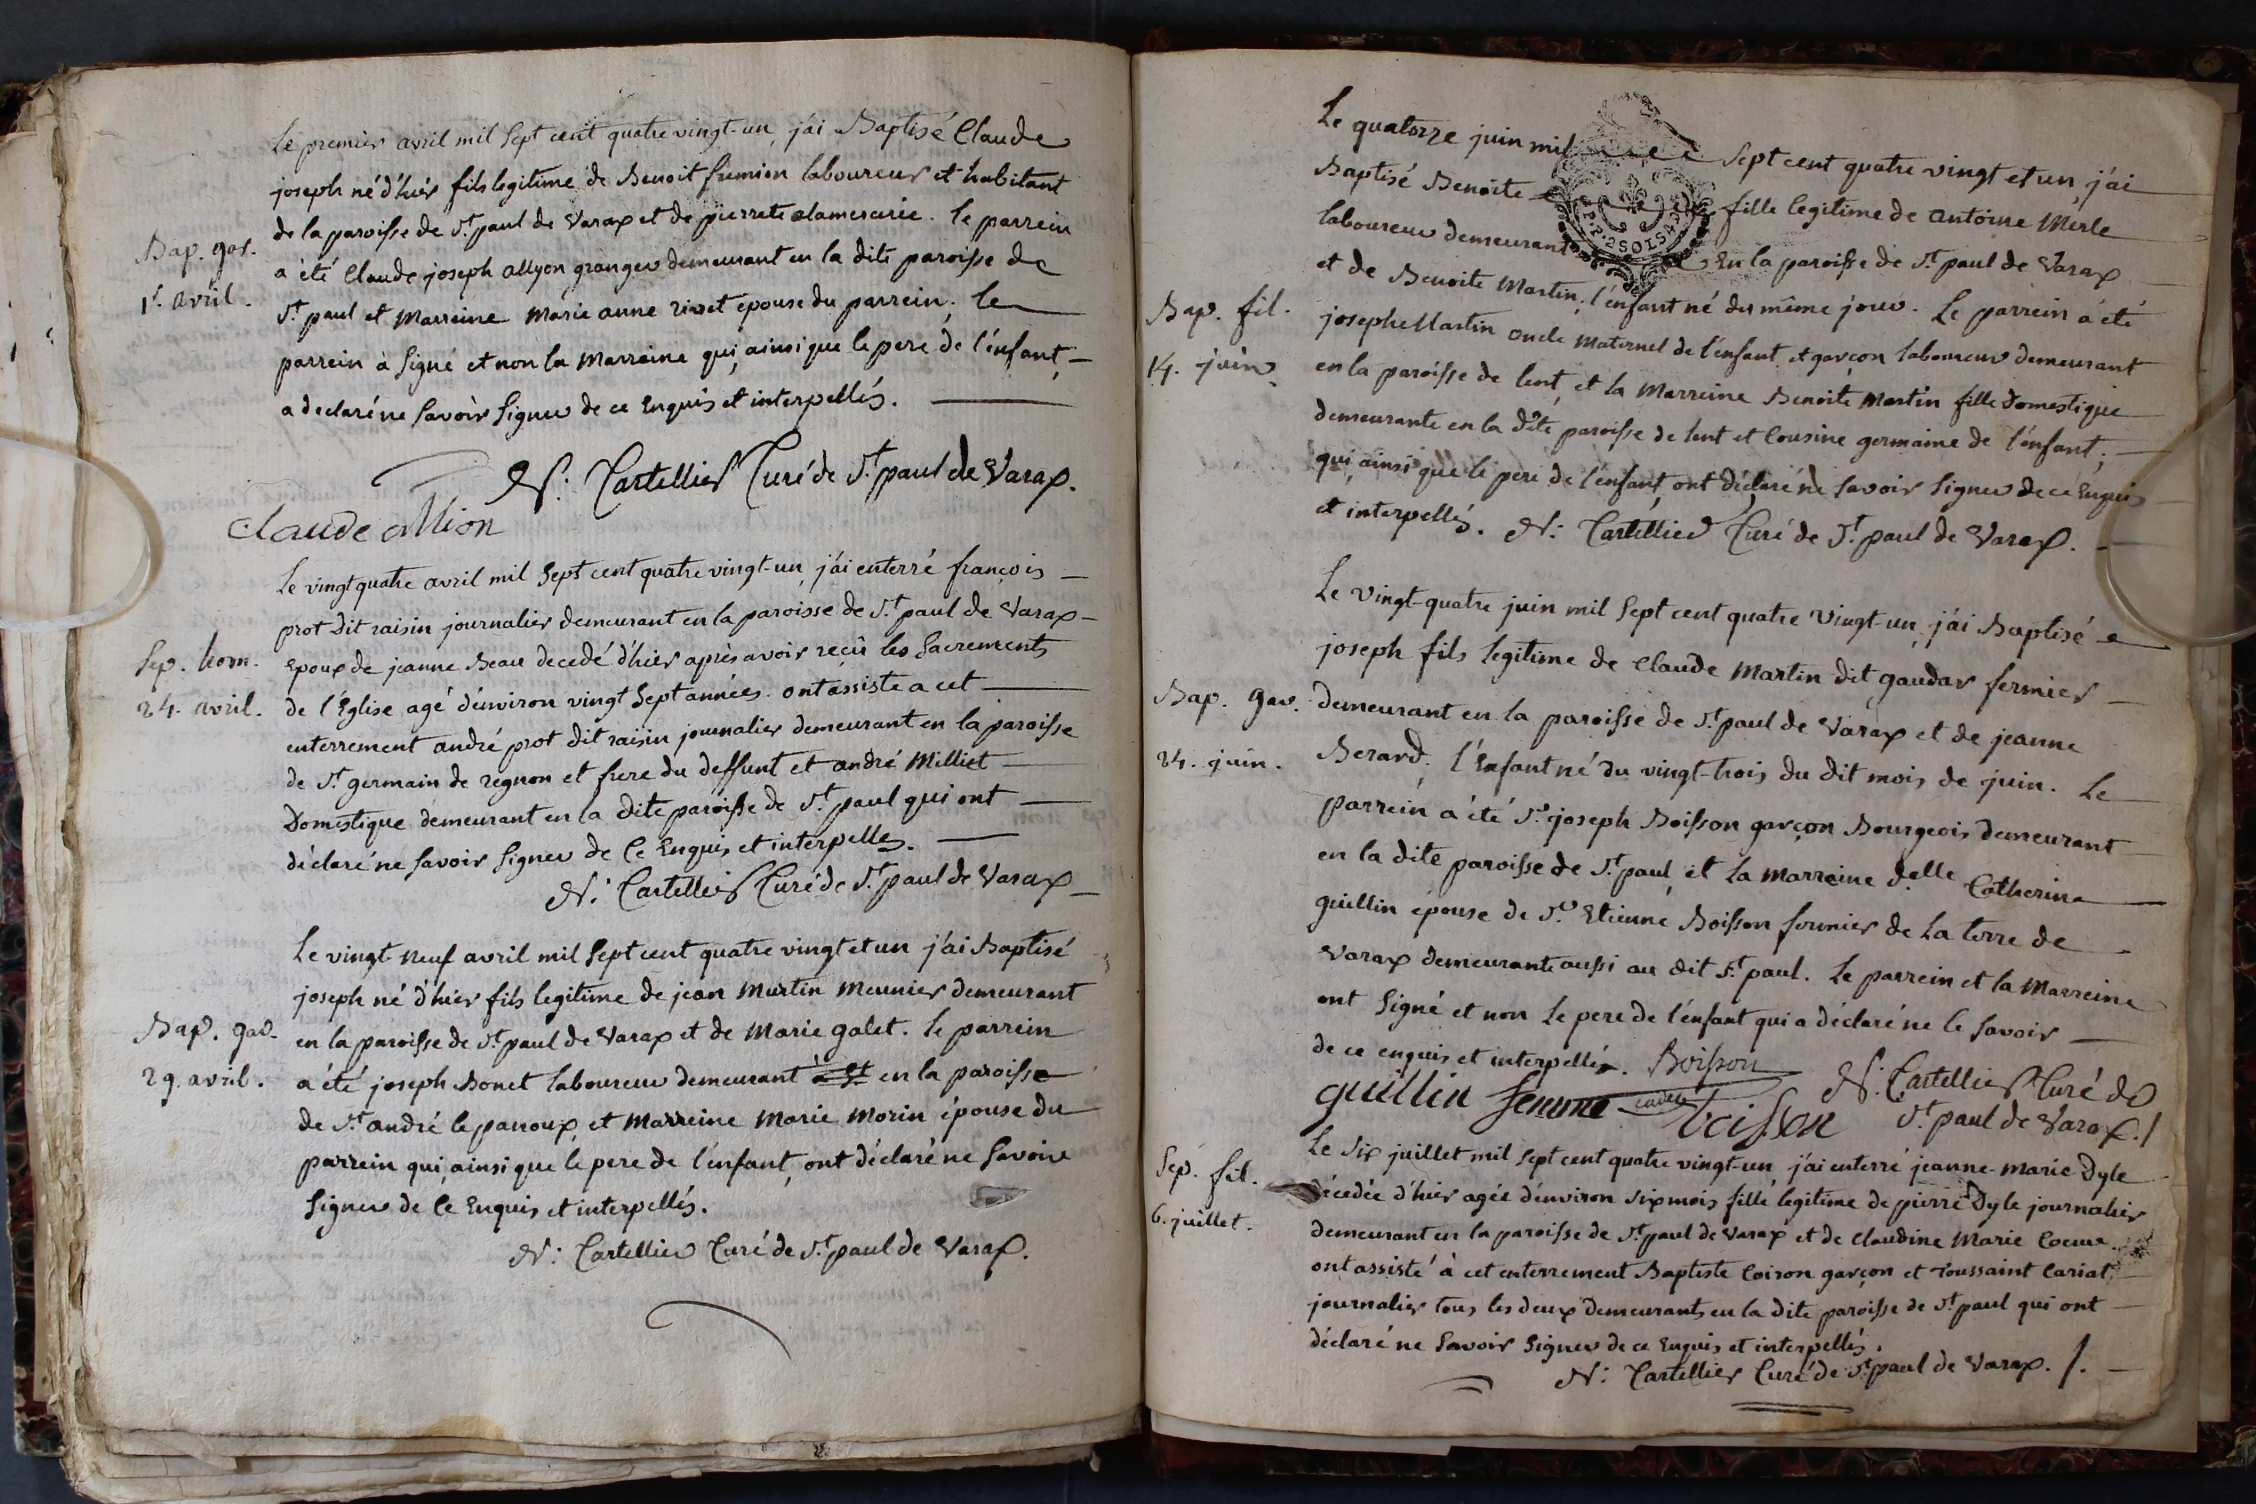 Le premier avril mil Sept cent quatre vingt-un j'ai Baptisé Claude
joseph né d'hier fils legitime de Benoit fumion laboureur et habitant
de la paroisse de St. paul de Varax et de pierrete alamercerie. le parrein
a été Claude joseph allyon granger demeurant en la dite paroisse de
St. paul et Marreine Marie anne rivet epouse du parrein. le
parrein à Signé et non la Marreine qui ainsi que le pere de l'enfant
a declaré ne Savoir Signer de ce Enquis et interpellés.
Bap. gar.
1r. avril.
N. Cartellier Curé de St. paul de Varax.
Claude allion
Le vingt quatre avril mil Sept cent quatre vingt-un j'ai enterré françois
prot dit raisin journalier demeurant en la paroisse de St. paul de Varax
Epoux de jeanne Beau decedé d'hier après avoir reçû les Sacrements
de l'Église agé d'environ vingt Sept années. ont assisté a cet
enterrement andré prot dit raisin journalier demeurant en la paroisse
de St. germain de regnon et frere du deffunt et andré Milliet
Domestique demeurant en la dite paroisse de St. paul qui ont
déclaré ne Savoir Signer de Ce Enquis et interpellés.
Sep. hom.
24. avril.
N. Cartellier Curé de St. paul de Varax
Le vingt-neuf avril mil Sept cent quatre vingt et un j'ai Baptisé
joseph né d'hier fils legitime de jean Martin Meunier demeurant
en la paroisse de St. paul de Varax et de Marie galet. le parrein
a été joseph Bonet laboureur demeurant à St en la paroisse
de St. andré le panoux et Marreine Marie Morin épouse du
parrein qui ainsi que le pere de l'enfant ont déclaré ne Savoir
Signer de Ce Enquis et interpellés.
Bap. gar.
29. avril.
N. Cartellier Curé de St. paul de Varax.
Le quatorze juin mil Sept cent quatre vingt et un j'ai
Baptisé Benoite fille legitime de antoine Merle
laboureur demeurant En la paroisse de St. paul de Varax
et de Benoite Martin, l'enfant né du même jour. Le parrein a été
joseph Martin oncle Maternel de l'enfant et garçon laboureur demeurant
en la paroisse de lent, et la Marreine Benoite Martin fille Domestique
demeurante en la dite paroisse de lent et Cousine germaine de l'enfant;
qui ainsi que le pere de l'enfant ont déclaré ne Savoir Signer de ce Enquis
et interpellés. N. Cartellier Curé de St. paul de Varax.
Bap. fil.
14. juin.
Le Vingt-quatre juin mil Sept cent quatre Vingt-un j'ai Baptisé
joseph fils legitime de Claude Martin dit gaudar fermier
demeurant en la paroisse de St. paul de Varax et de jeanne
Berard. l'Enfant né du vingt-trois du dit mois de juin. Le
parrein a été Sr. joseph Boisson garçon Bourgeois demeurant
en la dite paroisse de St. paul et la Marreine delle Catherine
guillin épouse de Sr. Etienne Boisson fermier de la terre de
Varax demeurante aussi au dit St. paul. Le parrein et la Marreine
ont Signé et non Le pere de l'enfant qui a déclaré ne le Savoir
de ce enquis et interpellés. Boisson
Bap. gar.
24. juin.
guillin femme Boisson
N. Cartellier Curé de
St. paul de Varax.
Le Six juillet mil Sept cent quatre vingt-un j'ai enterré jeanne-marie Dyle
décedée d'hier agée d'environ Six mois fille legitime de pierre Dyle journalier
demeurant en la paroisse de St. paul de Varax et de Claudine Marie Coeur.
ont assisté à cet enterrement Baptiste Coiron garçon et Toussaint Cariat
journalier tous les deux Demeurants en la dite paroisse de St. paul qui ont
déclaré ne Savoir Signer de ce Enquis et interpellés.
Sep. fil.
6. juillet.
N. Cartellier Curé de St. paul de Varax.